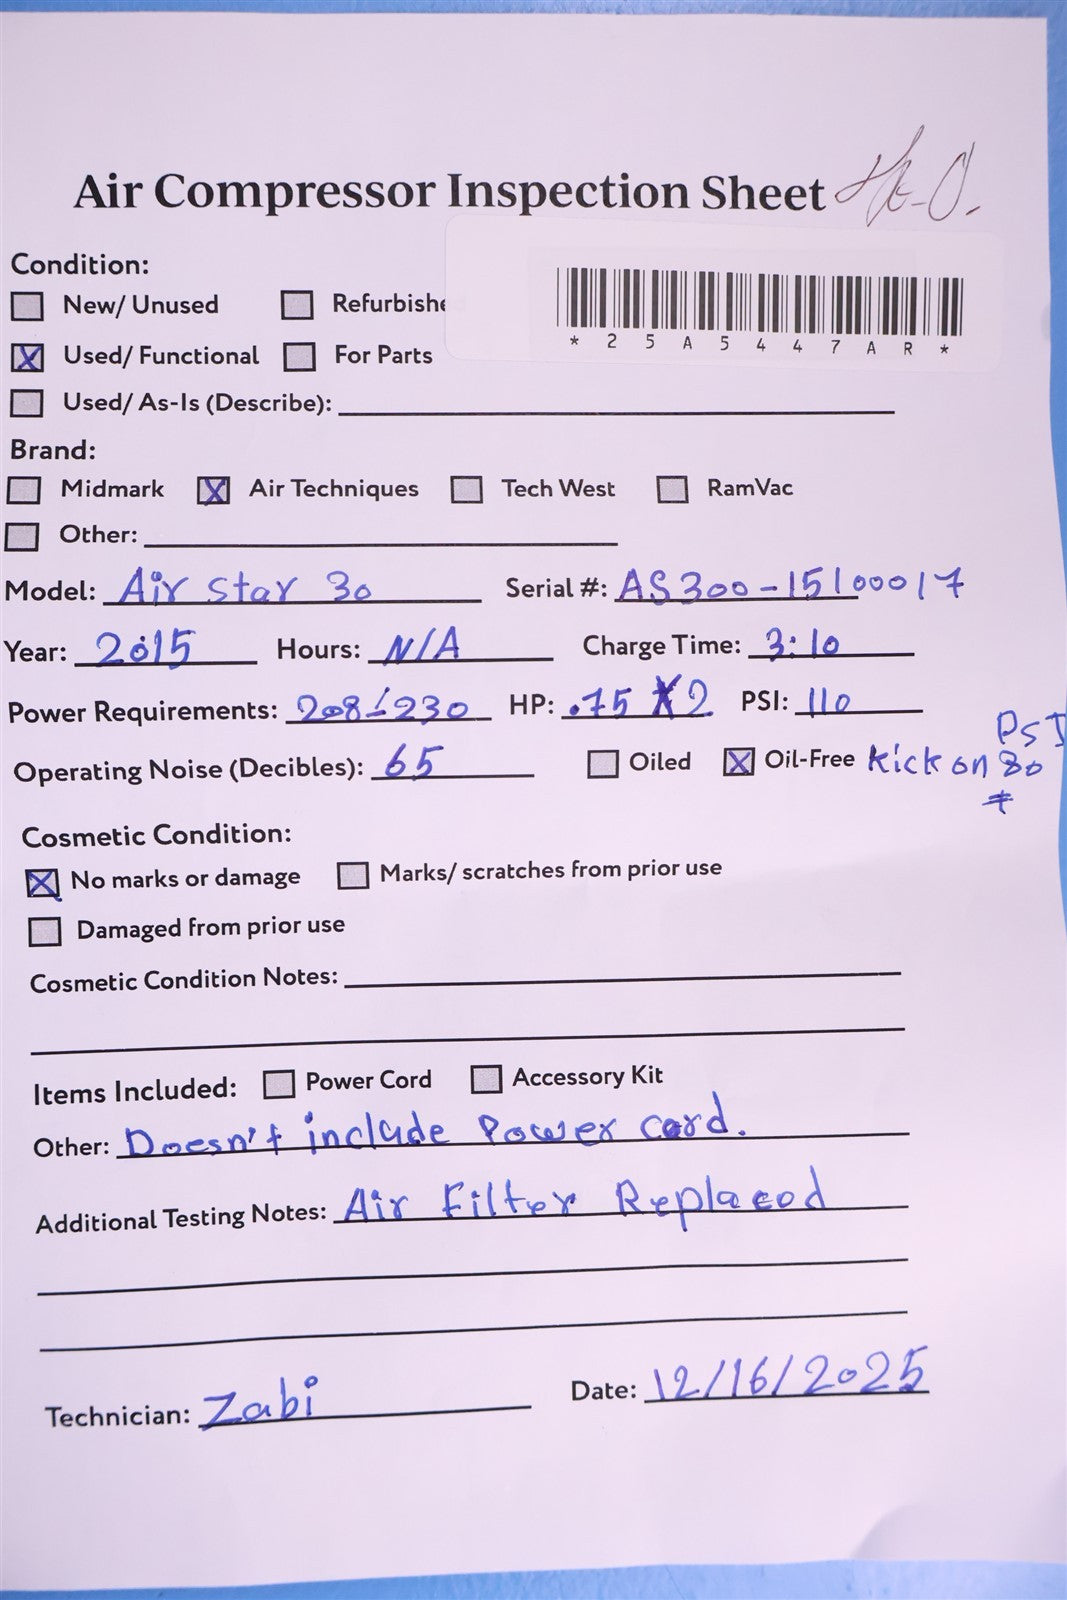 Air Compressor Inspection Sheet
Condition:
New/ Unused Refurbishe
*25A5447AR*
Used/ Functional For Parts
Used/ As-Is (Describe):
Brand:
Midmark Air Techniques Tech West RamVac
Other:
Model: Air Star 30 Serial #: AS300-15100017
Year: 2015 Hours: N/A Charge Time: 3:10
Power Requirements: 208-230 HP: .75 X2 PSI: 110
Operating Noise (Decibles): 65 Oiled Oil-Free Kick on 80 PSI
Cosmetic Condition:
No marks or damage Marks/ scratches from prior use
Damaged from prior use
Cosmetic Condition Notes:
Items Included: Power Cord Accessory Kit
Other: Doesn't include Power cord.
Additional Testing Notes: Air Filter Replaced
Technician: Zabi Date: 12/16/2025